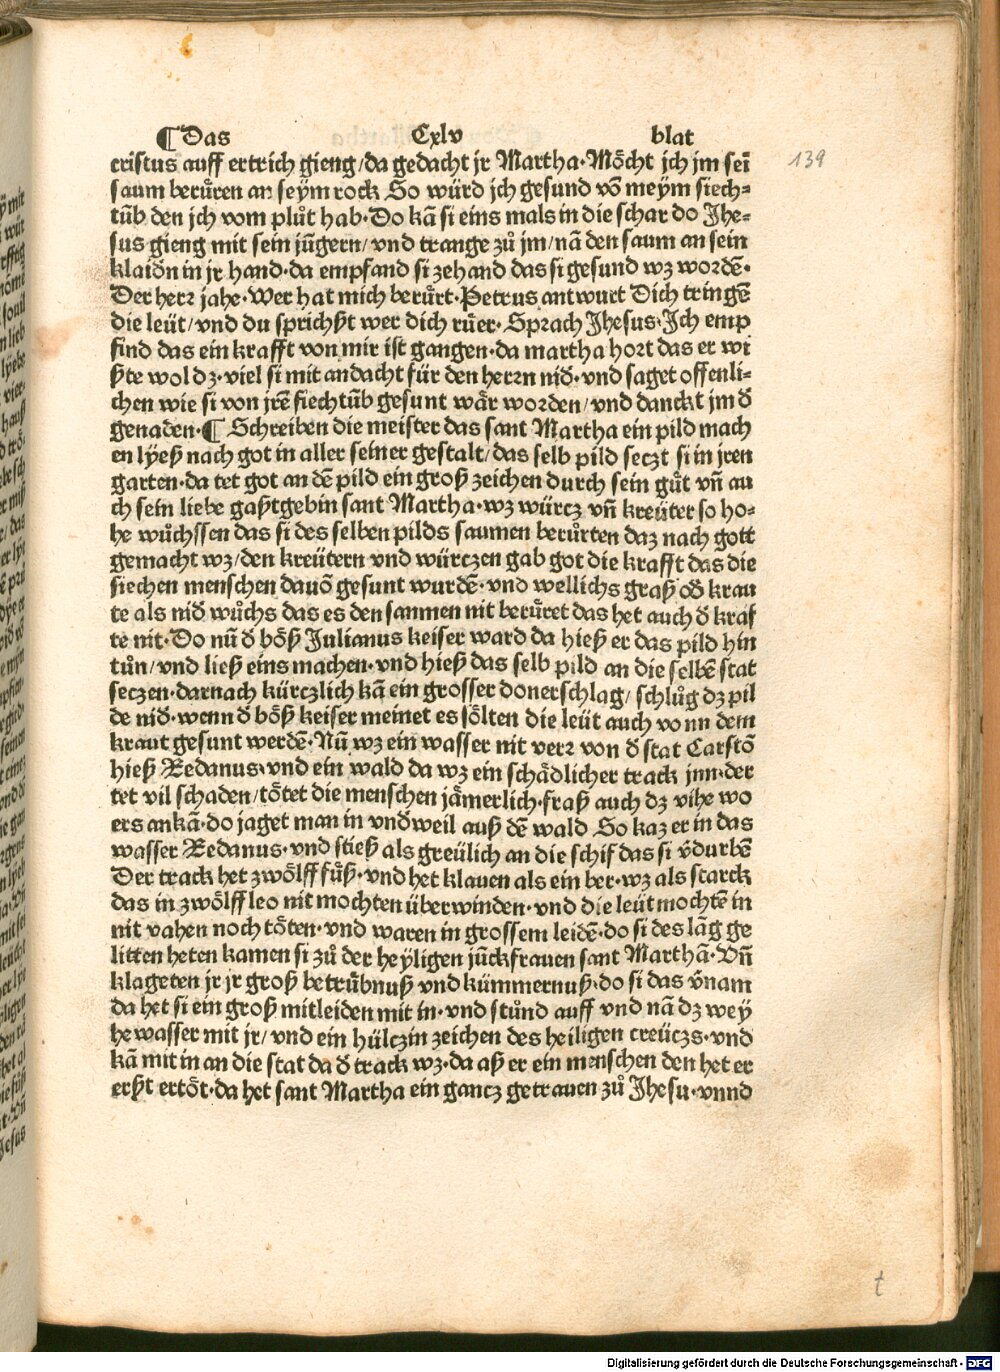 ¶ Das Cxlv blat
139
cristus auff ertrich gieng/da gedacht jr Martha·Möcht jch jm sei̅
saum berüren an seÿm rock So würd jch gesund vo̅ meÿm siech⸗
tu̅b den jch vom plůt hab·Do ka̅ si eins mals in die schar do Jhe⸗
sus gieng mit sein ju̅gern/vnd trange zů jm/na̅ den saum an sein
klaidn in jr hand·da empfand si zehand das si gesund wz worde̅·
Der herꝛ jahe·Wer hat mich berürt·Petrus antwurt Dich tringe̅
die leüt/vnd du sprichst wer dich rüer·Sprach Jhesus·Jch emp
find das ein krafft von mir ist gangen·da martha hort das er wi
ste wol dz·viel si mit andacht für den herrn nid·vnd saget offenli⸗
chen wie si von jre̅ siechtu̅b gesunt wär worden/vnd danckt jm đ
genaden·¶ Schreiben die meister das sant Martha ein pild mach
en lÿeß nach got in aller seiner gestalt/das selb pild seczt si in jren
garten·da tet got an de̅ pild ein groß zeichen durch sein gůt vn̅ au
ch sein liebe gastgebin sant Martha·wz würcz vn̅ kreüter so ho⸗
he wůchssen das si des selben pilds saumen berůrten daz nach gott
gemacht wz/den kreütern vnd würczen gab got die krafft das die
siechen menschen dauo̅ gesunt wurde̅·vnd wellichs graß ođ krau
te als nid wůchs das es den sanmen nit berüret das het auch đ kraf
te nit·Do nu̅ đ böß Julianus keiser ward da hieß er das pild hin
tůn/vnd ließ eins machen·vnd hieß das selb pild an die selbe̅ stat
seczen·darnach kürczlich ka̅ ein grosser donerschlag/schlůg dz pil
de nid·wenn đ böß keiser meinet es sölten die leüt auch vonn dem
kraut gesunt werde̅·Nu̅ wz ein wasser nit verꝛ von đ stat Carsto̅
hieß Redanus·vnd ein wald da wz ein schädlicher track jnn·der
tet vil schaden/tötet die menschen jämerlich·fraß auch dz vihe wo
ers anka̅·do jaget man in vndweil auß de̅ wald So kaz er in das
wasser Redanus·vnd stieß als greülich an die schif das si v̄durbe̅
Der track het zwölff füß·vnd het klauen als ein ber·wz als starck
das in zwölff leo nit mochten überwinden·vnd die leüt mochte̅ in
nit vahen noch töten·vnd waren in grossem leide̅·do si des la̅g ge
litten heten kamen si zů der heÿligen ju̅ckfrauen sant Martha̅·Vn̅
klageten jr jr groß betrübnuß vnd kümmernuß·do si das v̄nam
da het si ein groß mitleiden mit in·vnd stůnd auff vnd na̅ dz weÿ
he wasser mit jr/vnd ein hülczin zeichen des heiligen creüczs·vnd
ka̅ mit in an die stat da đ track wz·da aß er ein menschen den het er
erst ertöt·da het sant Martha ein gancz getrauen zů Jhesu·vnnd
t
Digitalisierung gefördert durch die Deutsche Forschungsgemeinschaft - DFG